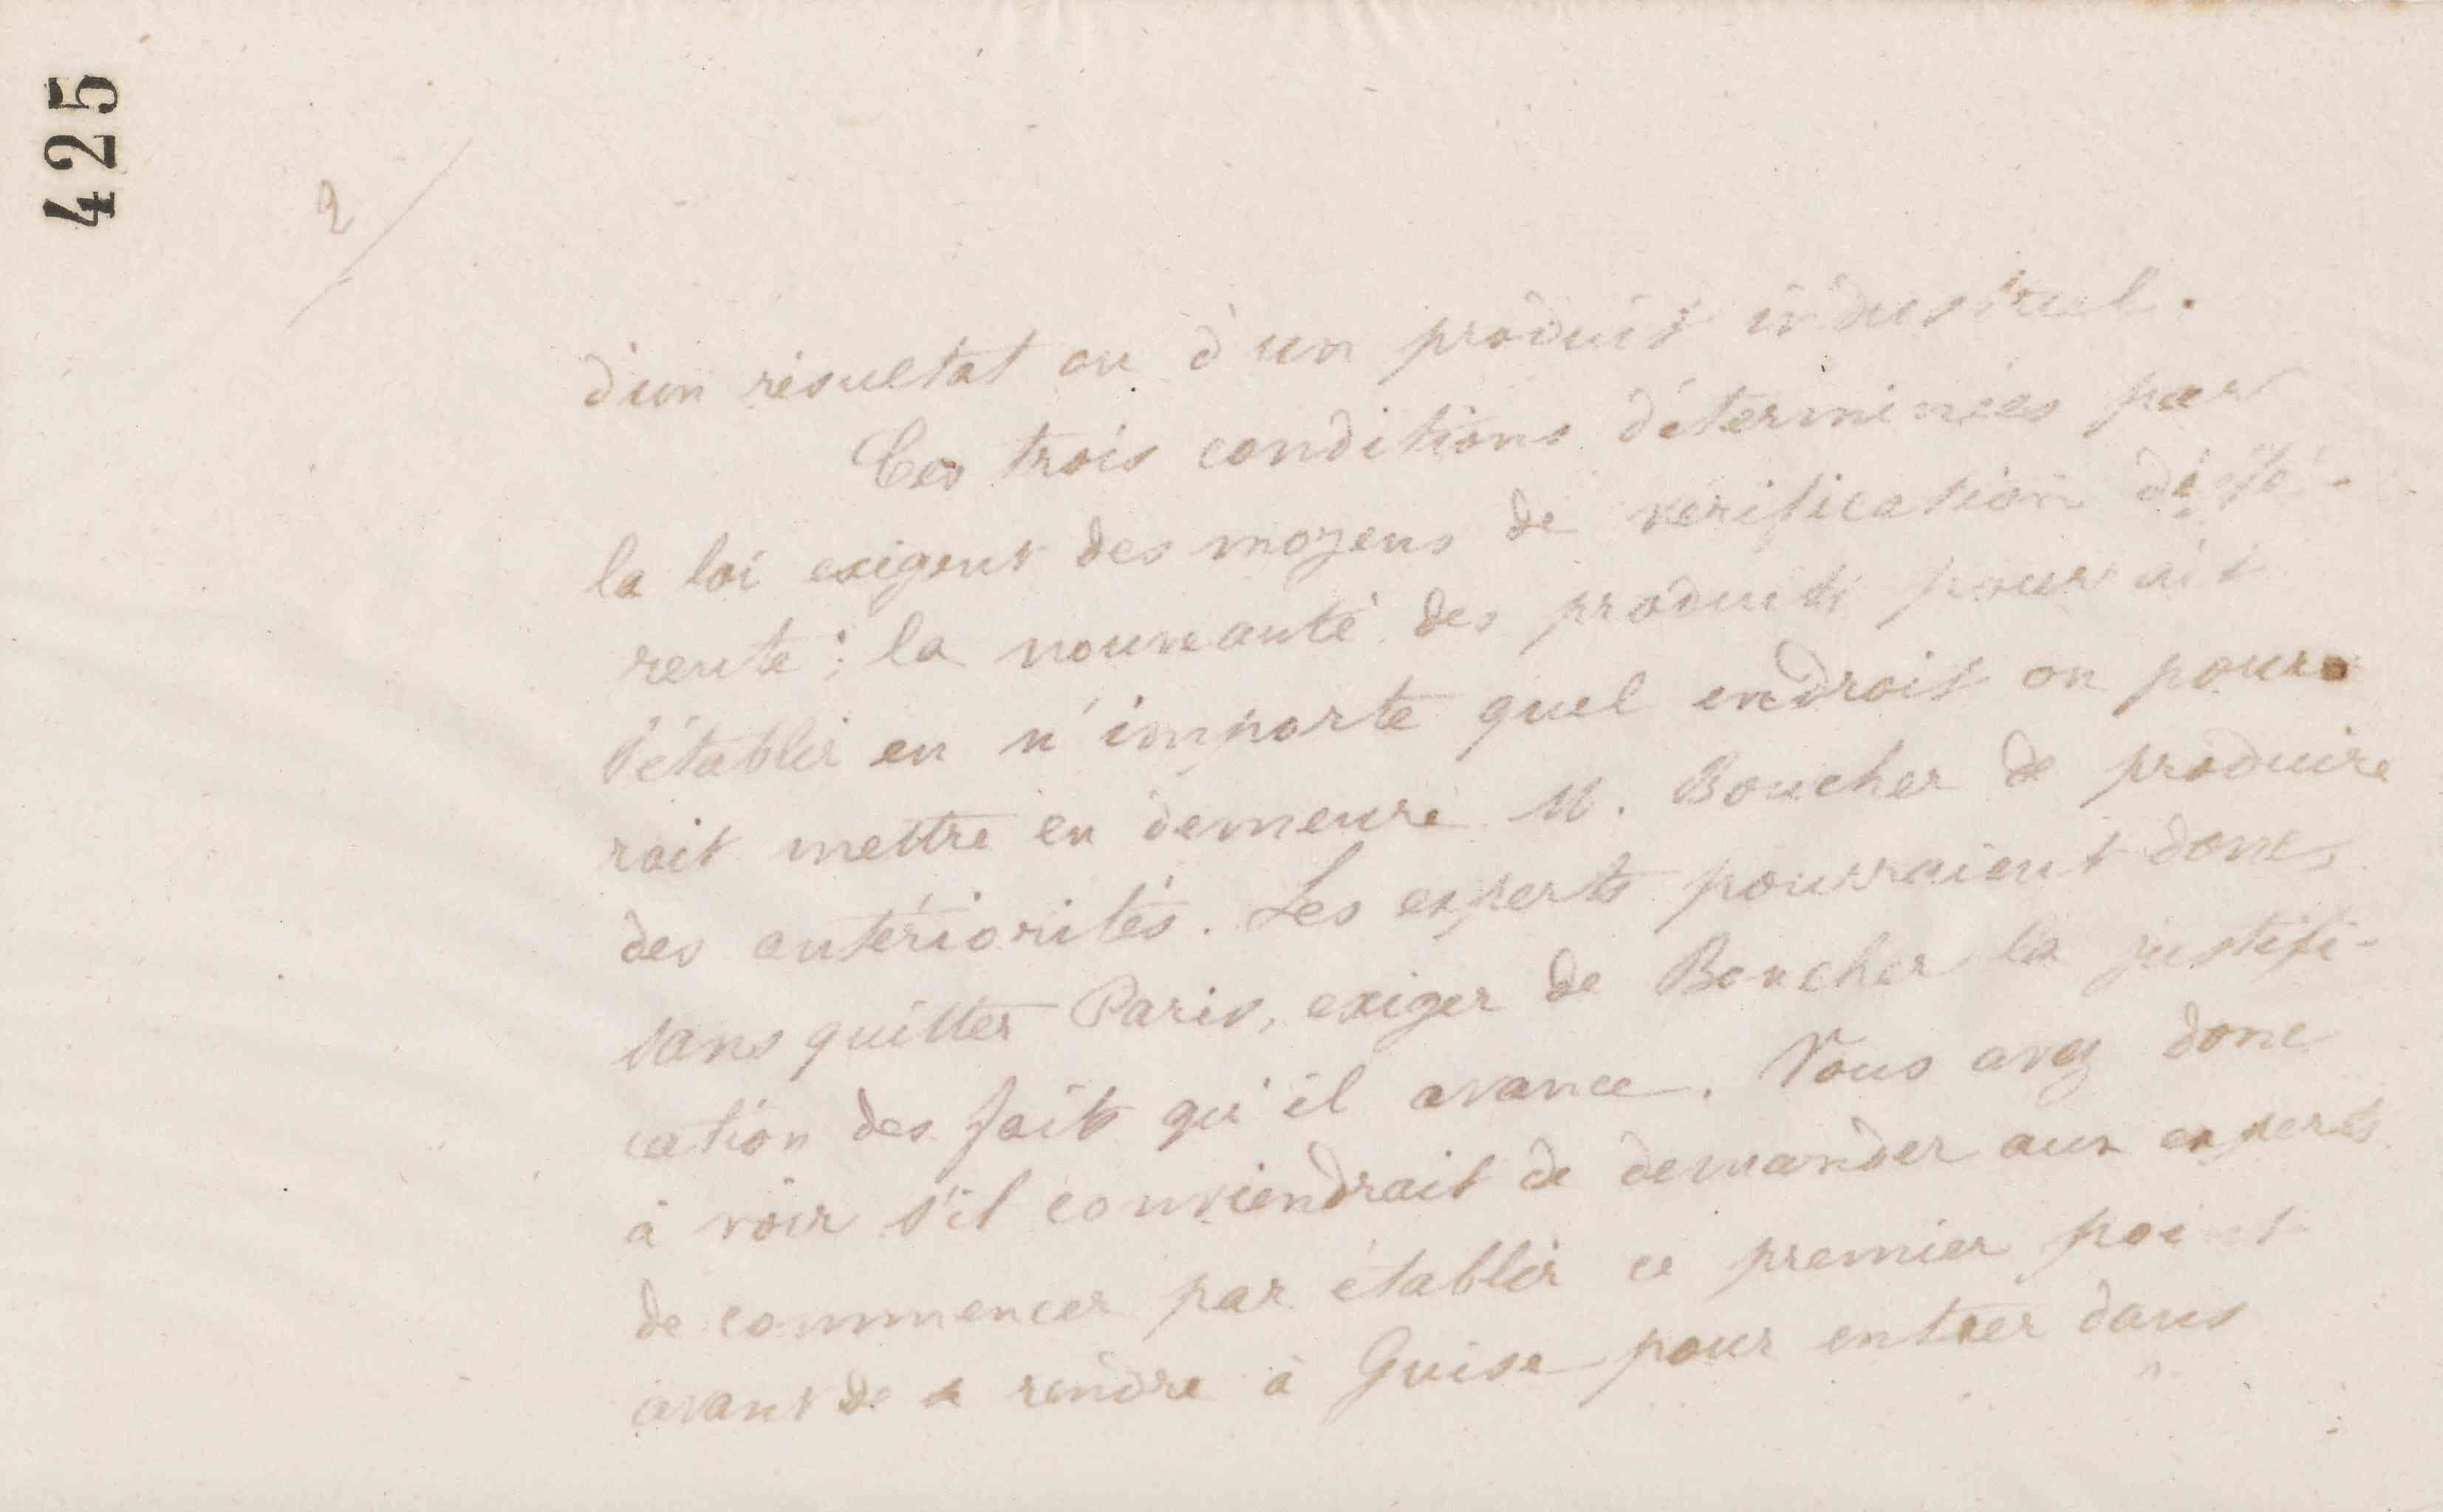 425
2
d'un résultat ou d'un produit industriel.
Ces trois conditions déterminées par
la loi exigent des moyens de vérification diffé-
rente : la nouveauté des produits pourrait
s'établir en n'importe quel endroit on pour
rait mettre en demeure M. Boucher de produire
des antériorités. Les experts pourraient donc,
sans quitter Paris, exiger de Boucher la justifi-
cation des faits qu'il avance. Vous avez donc
à voir s'il conviendrait de demander aux experts
de commencer par établir ce premier point
avant de se rendre à Guise pour entrer dans